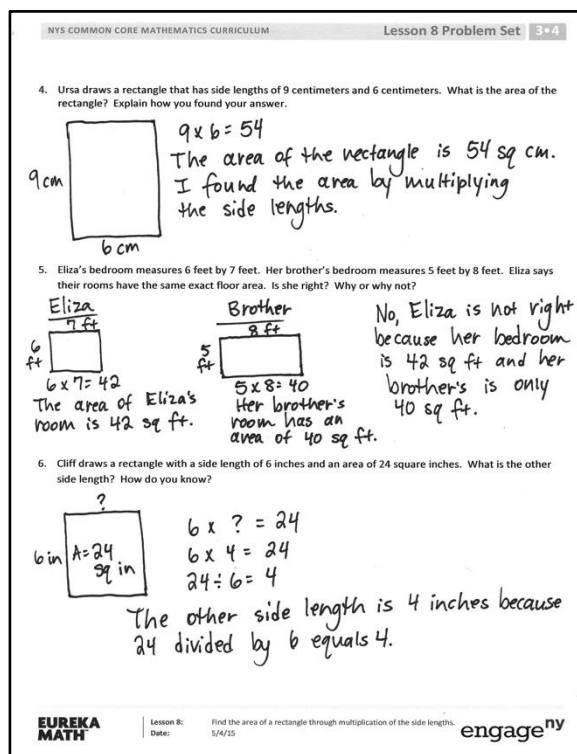 NYS COMMON CORE MATHEMATICS CURRICULUM Lesson 8 Problem Set 3•4
4. Ursa draws a rectangle that has side lengths of 9 centimeters and 6 centimeters. What is the area of the
rectangle? Explain how you found your answer.
9 x 6 = 54
The area of the rectangle is 54 sq cm.
9 cm
I found the area by multiplying
the side lengths.
6 cm
5. Eliza's bedroom measures 6 feet by 7 feet. Her brother's bedroom measures 5 feet by 8 feet. Eliza says
their rooms have the same exact floor area. Is she right? Why or why not?
Eliza
7 ft
6
ft
6 x 7 = 42
The area of Eliza's
room is 42 sq ft.
Brother
8 ft
5
ft
5 x 8 = 40
Her brother's
room has an
area of 40 sq ft.
No, Eliza is not right
because her bedroom
is 42 sq ft and her
brother's is only
40 sq ft.
6. Cliff draws a rectangle with a side length of 6 inches and an area of 24 square inches. What is the other
side length? How do you know?
?
6 in
A=24
sq in
6 x ? = 24
6 x 4 = 24
24 ÷ 6 = 4
The other side length is 4 inches because
24 divided by 6 equals 4.
EUREKA
MATH™
Lesson 8: Find the area of a rectangle through multiplication of the side lengths.
Date: 5/4/15
engage ny